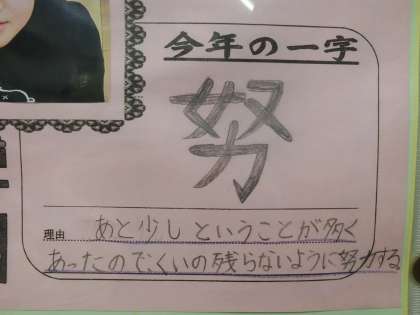 今年の一字
努
理由 あと少しということが多く
あったので、くいの残らないように努力する